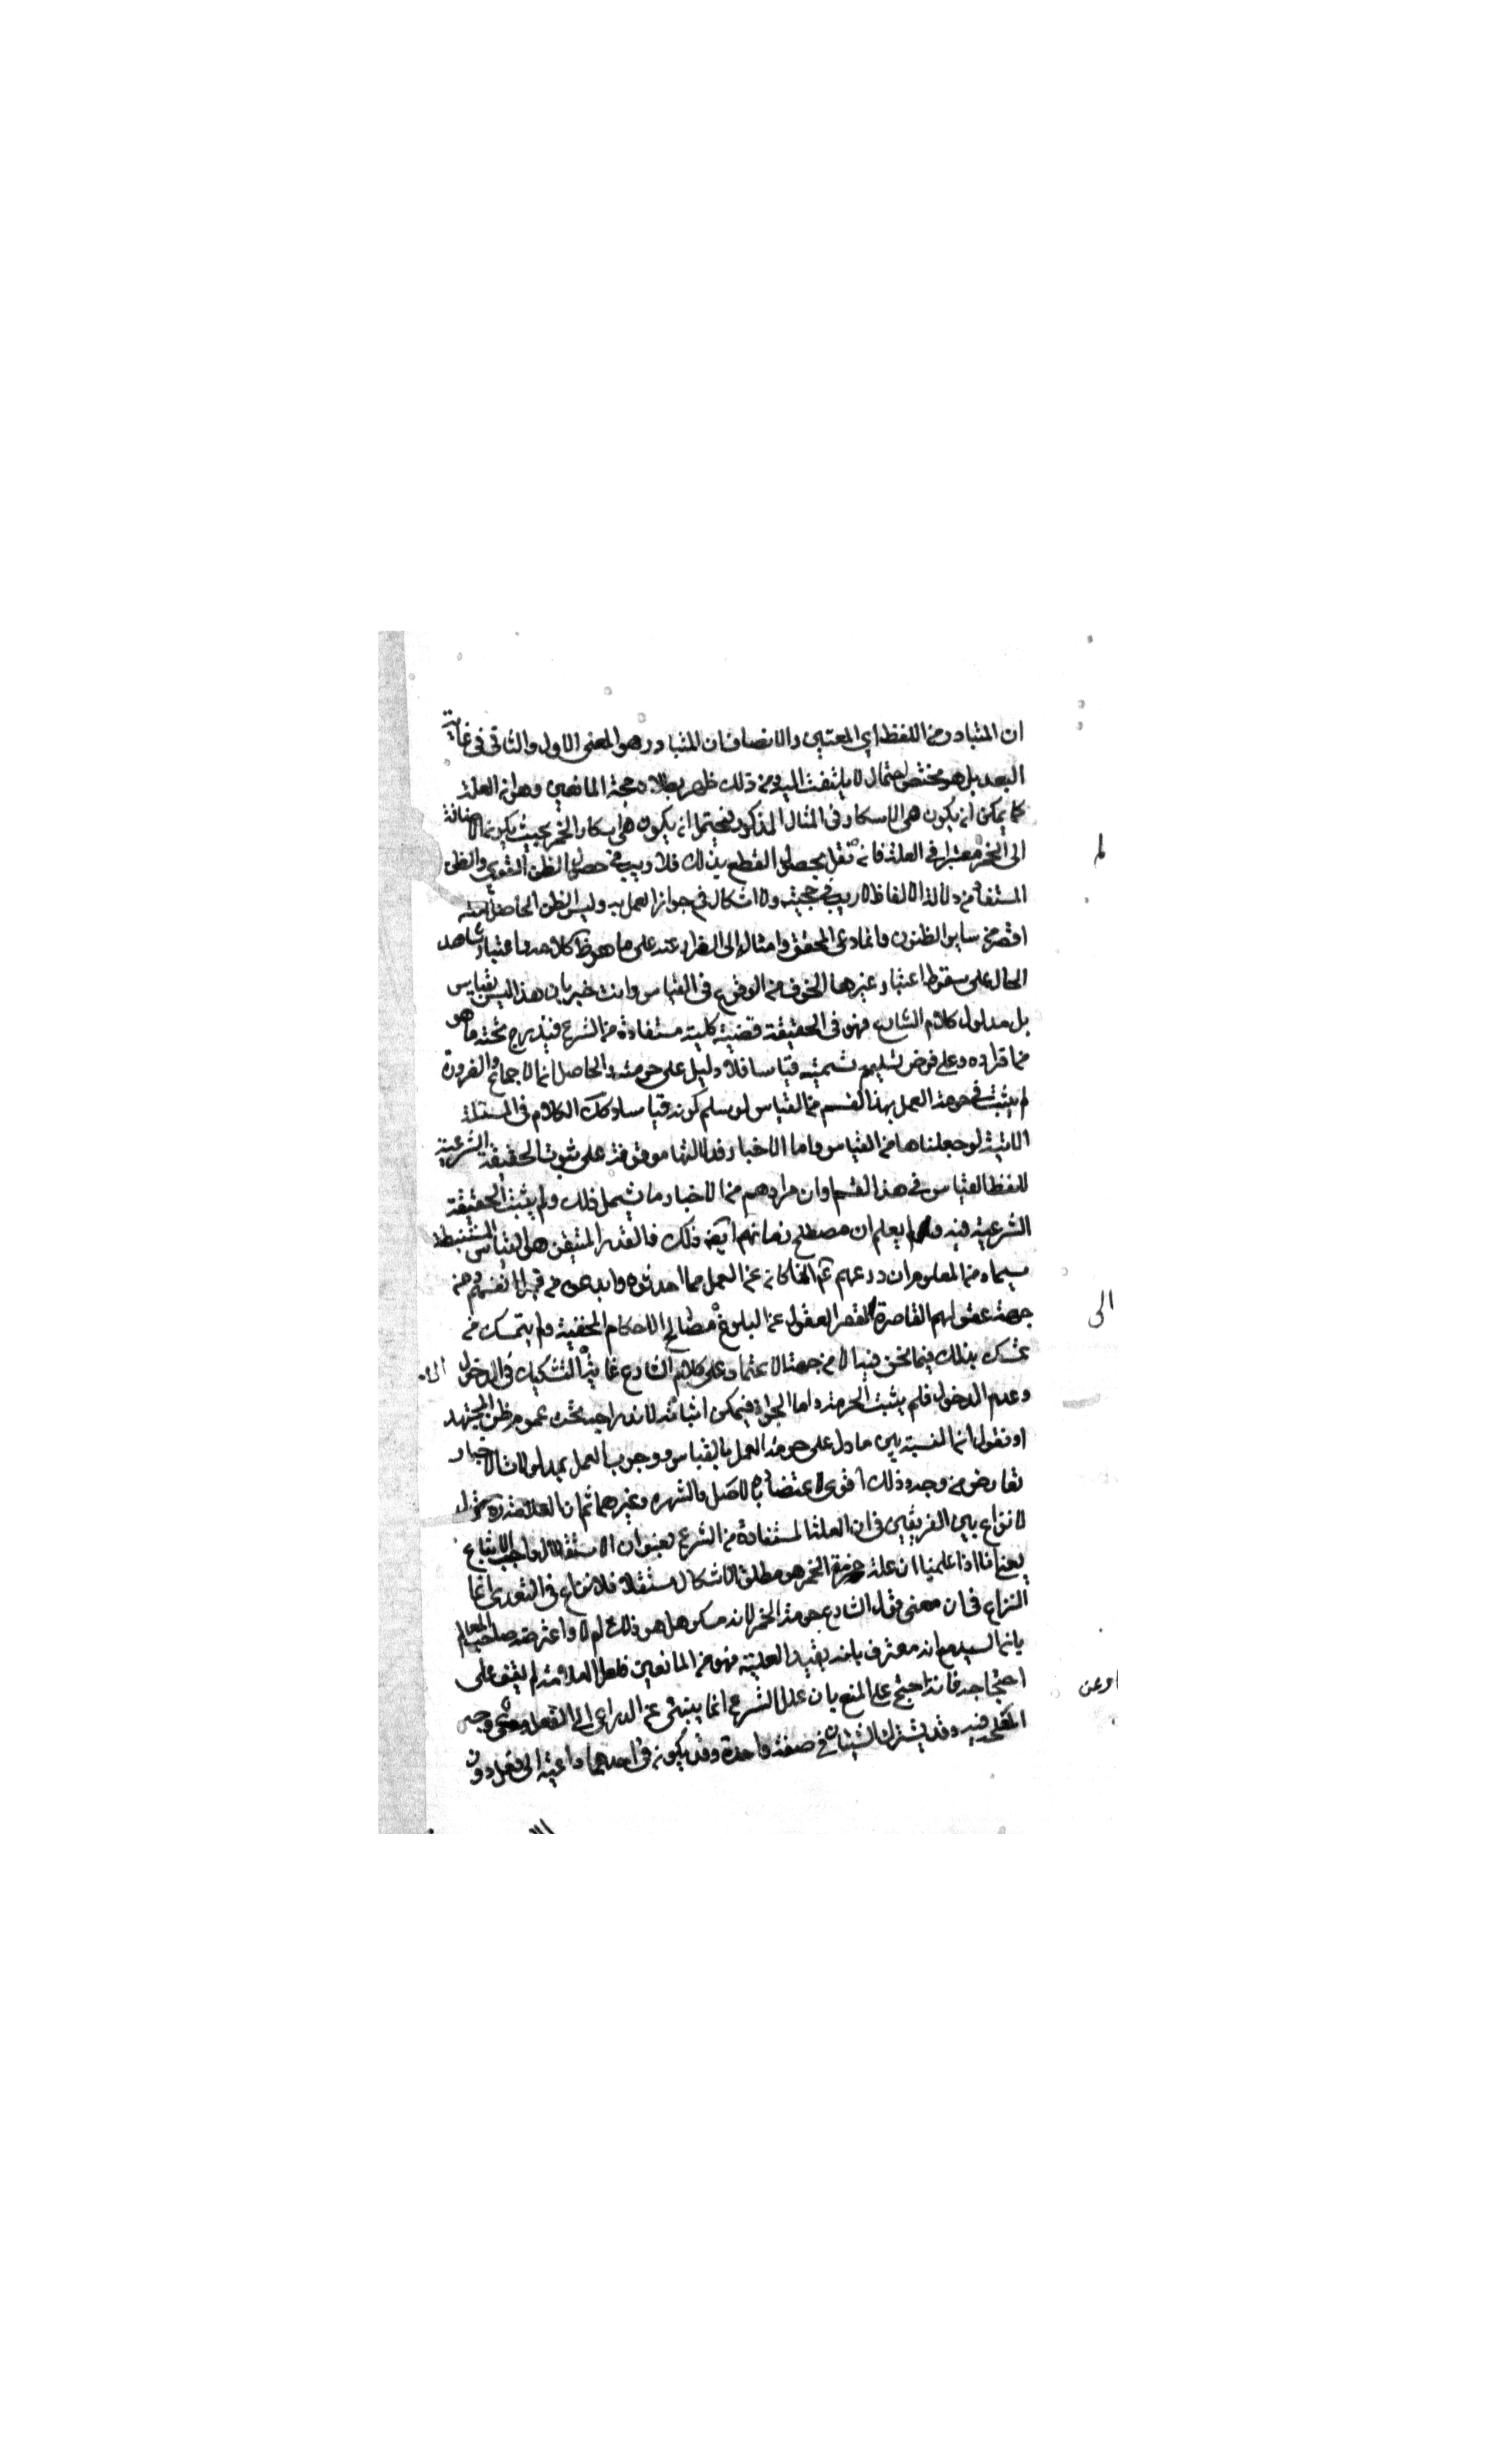 ان المتبادر من اللفظ اي المعنيين والانصاف ان المتبادر هو المعنى الاول والثاني في غاية
البعد بل هو محض احتمال لا يلتفت اليه ومن ذلك ظهر بطلان حجة المانعين وهو ان العلة
كما يمكن ان يكون هي الاسكار في المثال المذكور فيحتمل ان يكون هي اسكار الخمر بحيث يكون الاضافة
الى الخمر معتبرا في العلة فانه نقل يحصل القطع بذلك فلا ريب في حصول الظن القوي والظن
المستفاد من دلالة الالفاظ لا ريب في حجيته ولا اشكال في جواز العمل به وليس الظن الحاصل منه
اقصر من ساير الظنون وانما دعى المحقق وامثاله الى الفرار عنه على ما هو ظ كلامه باعتبار شاهد
الحال على سقوط اعتبار غيرها الخوف من الوقوع في القياس وانت خبير بان هذا ليس بقياس
بل مدلول كلام الشارع فهو في الحقيقة قضية كلية مستفادة من الشرع فيندرج تحته ما هو
من افراده وعلى فرض تسليم تسميته قياسا فلا دليل على حرمته والحاصل ان الاجماع والضرورة
لم يثبت في حرمة العمل بهذا القسم من القياس لو سلم كونه قياسا وكك الكلام في المسئلة
الاتية لو جعلناها من القياس واما الاخبار فدلالتها موقوفة على ثبوت الحقيقة الشرعية
للفظ القياس في هذا القسم او ان مرادهم من الاخبار ما يشمل ذلك ولم يثبت الحقيقة
الشرعية فيه ولم يعلم ان مصطلح زمانهم ايضا ذلك فالقدر المتيقن هو القياس المستنبط
سيما ومن المعلوم ان ردعهم ع انما كان عن العمل مما احدثوه وابدعوه من قبل انفسهم ومن
جهة عقولهم القاصرة لقصر العقول عن البلوغ الى مصالح الاحكام الخفية ولم يتمسك من
تمسك بذلك فيما نحن فيه الا من جهة الاعتماد على كلام الشارع غايته التشكيك في الدخول
وعدم الدخول فلم يثبت الحرمة واما الجواز فيمكن اثباته لاندراجه تحت عموم ظن المجتهد
او نقول ان النسبة بين ما دل على حرمة العمل بالقياس ووجوب العمل بمدلولات الاخبار
تعارض من وجه وذلك اقوى لاعتضاده بالاصل والشهرة وغيرهما ثم ان العلامة ره يقول
لا نزاع بين الفريقين في ان العلة المستفادة من الشرع بعنوان الاستقلال واجب الاتباع
يعني انا اذا علمنا ان علة حرمة الخمر هو مطلق الاسكار مستقلا فلا نزاع في التعدي انما
النزاع في ان معنى قول الشارع حرمت الخمر لانه مسكر هل هو ذلك ام لا واعترضه صاحب المعالم
بان السيد مع انه معترف بانه يفيد العلية فهو من المانعين فلعل العلامة لم يقف على
احتجاجه فانه احتج على المنع بان علل الشرع انما ينبئ عن الدواعي الى الفعل او عن وجه
المصلحة فيه وقد يشترك الشيئان في صفة واحدة وقد يكون في احدهما داعية الى فعله دون
الى
او عن